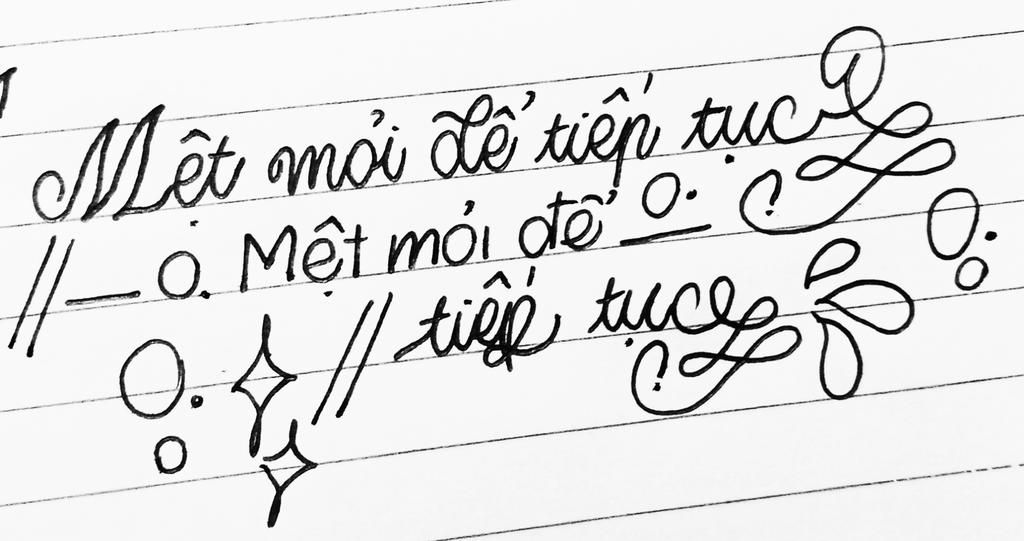 Mệt mỏi để tiếp tục
Mệt mỏi để
tiếp tục